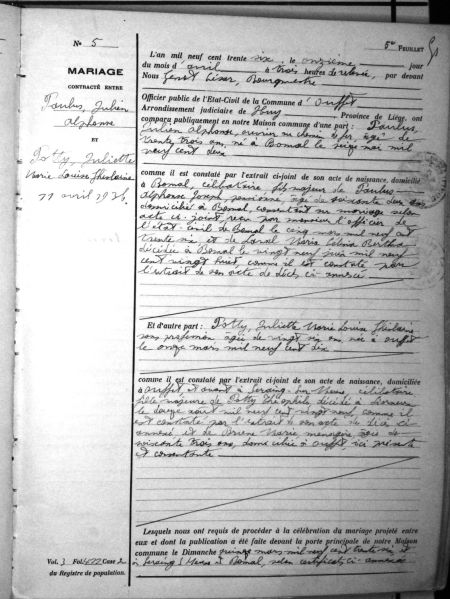 N° 5
5e FEUILLET
MARIAGE
CONTRACTÉ ENTRE
Paulus, Julien
Alphonse
ET
Potty, Juliette
Marie Louise Ghislaine
11 avril 1936.
L'an mil neuf cent trente six, le onzième jour
du mois d'avril à trois heures de relevée, par devant
Nous Bourgmestre
Officier public de l'Etat-Civil de la Commune d'Ouffet
Arrondissement judiciaire de Huy Province de Liége, ont
comparu publiquement en notre Maison commune d'une part : Paulus,
Julien Alphonse, ouvrier au chemin de fer, âgé de
trente trois ans, né à Bomal le seize mai mil
neuf cent deux
comme il est constaté par l'extrait ci-joint de son acte de naissance, domicilié
à Bomal, célibataire, fils majeur de Paulus
Alphonse Joseph, pensionné, âgé de soixante deux ans
domicilié à Bomal, consentant au mariage selon
acte ci-joint, reçu par l'officier de
l'état-civil de Bomal le cinq mars mil neuf cent
trente six et de Marie Bertha
décédée à Bomal le vingt neuf juin mil neuf
cent vingt huit, comme il est constaté par
l'extrait de son acte de décès ci-annexé.
Et d'autre part : Potty, Juliette Marie Louise Ghislaine
sans profession âgée de vingt six ans, née à Ouffet
le onze mars mil neuf cent dix
comme il est constaté par l'extrait ci-joint de son acte de naissance, domiciliée
à Ouffet, et avant à Seraing-sur-Meuse, célibataire
fille majeure de Potty Théophile, décédé à
le douze août mil neuf cent vingt neuf comme il
est constaté par l'extrait de son acte de décès ci
annexé et de Marie ménagère âgée de
soixante trois ans, domiciliée à Ouffet, ici présente
et consentante
Lesquels nous ont requis de procéder à la célébration du mariage projeté entre
eux et dont la publication a été faite devant la porte principale de notre Maison
commune le Dimanche quinze mars mil neuf cent trente six et
à Seraing s/Meuse et Bomal, selon certificats ci-annexés
Vol. 3 Fol. 422 Case 2
du Registre de population.